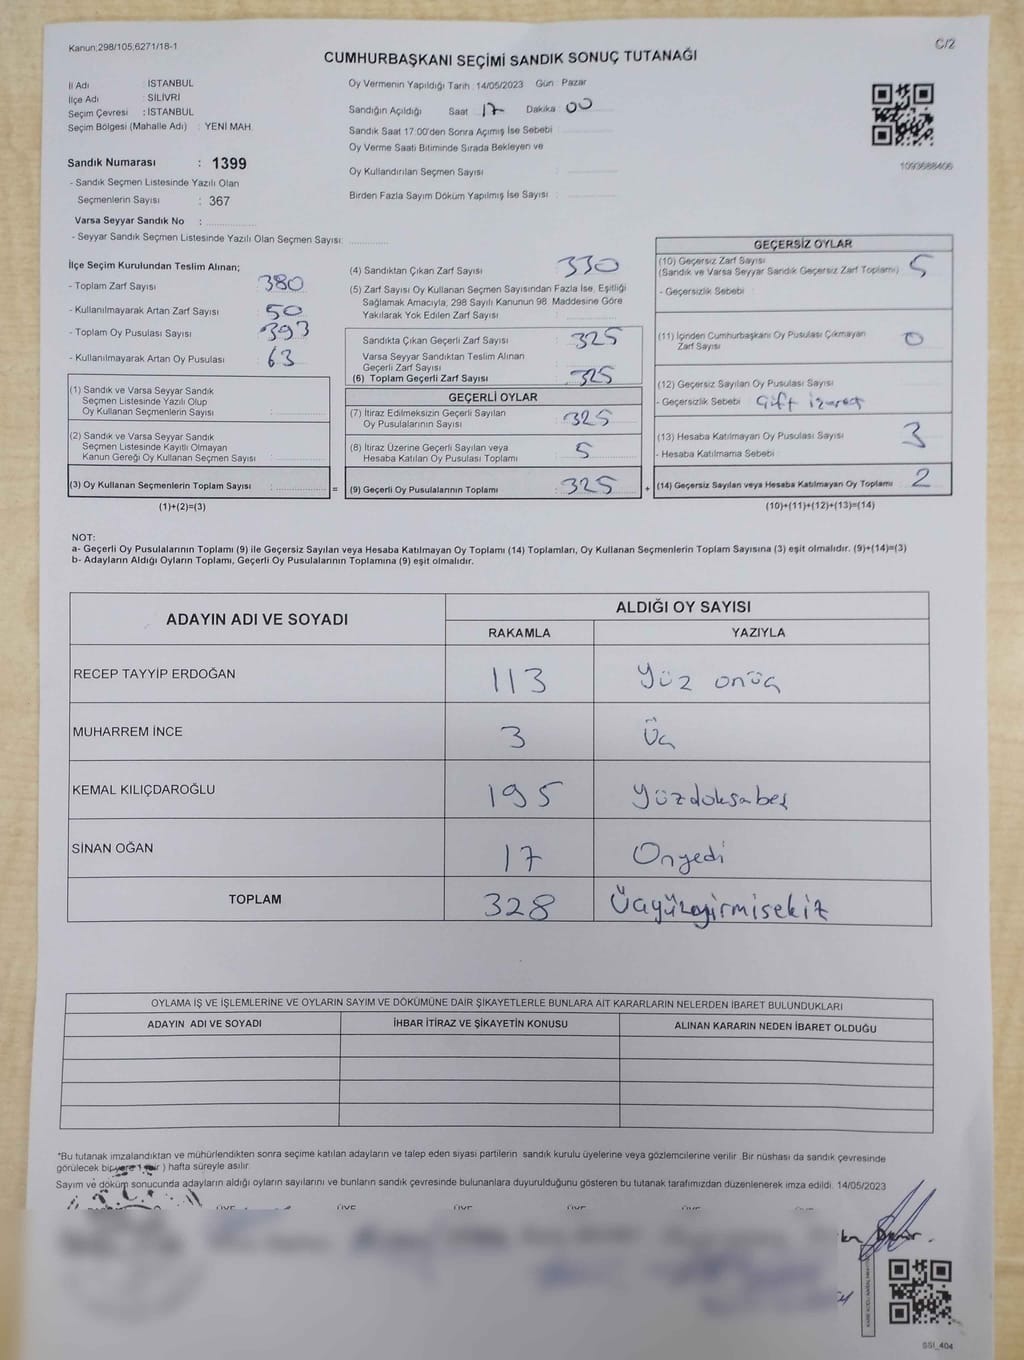 Kanun:298/105,6271/18-1
C/2
CUMHURBAŞKANI SEÇİMİ SANDIK SONUÇ TUTANAĞI
İl Adı : İSTANBUL
İlçe Adı : SİLİVRİ
Seçim Çevresi : İSTANBUL
Seçim Bölgesi (Mahalle Adı) : YENİ MAH.
Sandık Numarası : 1399
- Sandık Seçmen Listesinde Yazılı Olan
Seçmenlerin Sayısı : 367
Varsa Seyyar Sandık No :
- Seyyar Sandık Seçmen Listesinde Yazılı Olan Seçmen Sayısı:
Oy Vermenin Yapıldığı Tarih : 14/05/2023 Gün : Pazar
Sandığın Açıldığı Saat 17 Dakika 00
Sandık Saat 17:00'den Sonra Açımış İse Sebebi
Oy Verme Saati Bitiminde Sırada Bekleyen ve
Oy Kullandırılan Seçmen Sayısı
Birden Fazla Sayım Döküm Yapılmış İse Sayısı
1093688406
İlçe Seçim Kurulundan Teslim Alınan;
- Toplam Zarf Sayısı : 380
- Kullanılmayarak Artan Zarf Sayısı : 50
- Toplam Oy Pusulası Sayısı : 393
- Kullanılmayarak Artan Oy Pusulası : 63
(1) Sandık ve Varsa Seyyar Sandık
Seçmen Listesinde Yazılı Olup
Oy Kullanan Seçmenlerin Sayısı :
(2) Sandık ve Varsa Seyyar Sandık
Seçmen Listesinde Kayıtlı Olmayan
Kanun Gereği Oy Kullanan Seçmen Sayısı :
(3) Oy Kullanan Seçmenlerin Toplam Sayısı :
(1)+(2)=(3)
=
(4) Sandıktan Çıkan Zarf Sayısı : 330
(5) Zarf Sayısı Oy Kullanan Seçmen Sayısından Fazla İse, Eşitliği
Sağlamak Amacıyla, 298 Sayılı Kanunun 98. Maddesine Göre
Yakılarak Yok Edilen Zarf Sayısı :
Sandıkta Çıkan Geçerli Zarf Sayısı : 325
Varsa Seyyar Sandıktan Teslim Alınan
Geçerli Zarf Sayısı :
(6) Toplam Geçerli Zarf Sayısı : 325
GEÇERLİ OYLAR
(7) İtiraz Edilmeksizin Geçerli Sayılan
Oy Pusulalarının Sayısı : 325
(8) İtiraz Üzerine Geçerli Sayılan veya
Hesaba Katılan Oy Pusulası Toplamı : 5
(9) Geçerli Oy Pusulalarının Toplamı : 325
+
GEÇERSİZ OYLAR
(10) Geçersiz Zarf Sayısı
(Sandık ve Varsa Seyyar Sandık Geçersiz Zarf Toplamı) : 5
- Geçersizlik Sebebi :
(11) İçinden Cumhurbaşkanı Oy Pusulası Çıkmayan
Zarf Sayısı : 0
(12) Geçersiz Sayılan Oy Pusulası Sayısı
- Geçersizlik Sebebi : Çift işaret
(13) Hesaba Katılmayan Oy Pusulası Sayısı : 3
- Hesaba Katılmama Sebebi :
(14) Geçersiz Sayılan veya Hesaba Katılmayan Oy Toplamı : 2
(10)+(11)+(12)+(13)=(14)
NOT:
a- Geçerli Oy Pusulalarının Toplamı (9) ile Geçersiz Sayılan veya Hesaba Katılmayan Oy Toplamı (14) Toplamları, Oy Kullanan Seçmenlerin Toplam Sayısına (3) eşit olmalıdır. (9)+(14)=(3)
b- Adayların Aldığı Oyların Toplamı, Geçerli Oy Pusulalarının Toplamına (9) eşit olmalıdır.
ADAYIN ADI VE SOYADI ALDIĞI OY SAYISI
RAKAMLA YAZIYLA
RECEP TAYYİP ERDOĞAN 113 Yüz onüç
MUHARREM İNCE 3 Üç
KEMAL KILIÇDAROĞLU 195 Yüzdoksabeş
SİNAN OĞAN 17 Onyedi
TOPLAM 328 Üçyüzyirmisekiz
OYLAMA İŞ VE İŞLEMLERİNE VE OYLARIN SAYIM VE DÖKÜMÜNE DAİR ŞİKAYETLERLE BUNLARA AİT KARARLARIN NELERDEN İBARET BULUNDUKLARI
ADAYIN ADI VE SOYADI İHBAR İTİRAZ VE ŞİKAYETİN KONUSU ALINAN KARARIN NEDEN İBARET OLDUĞU
*Bu tutanak imzalandıktan ve mühürlendikten sonra seçime katılan adayların ve talep eden siyasi partilerin sandık kurulu üyelerine veya gözlemcilerine verilir. Bir nüshası da sandık çevresinde
görülecek bir yere 1 (bir ) hafta süreyle asılır.
Sayım ve döküm sonucunda adayların aldığı oyların sayılarını ve bunların sandık çevresinde bulunanlara duyurulduğunu gösteren bu tutanak tarafımızdan düzenlenerek imza edildi. 14/05/2023
ÜYE ÜYE ÜYE ÜYE ÜYE ÜYE
SSI_404